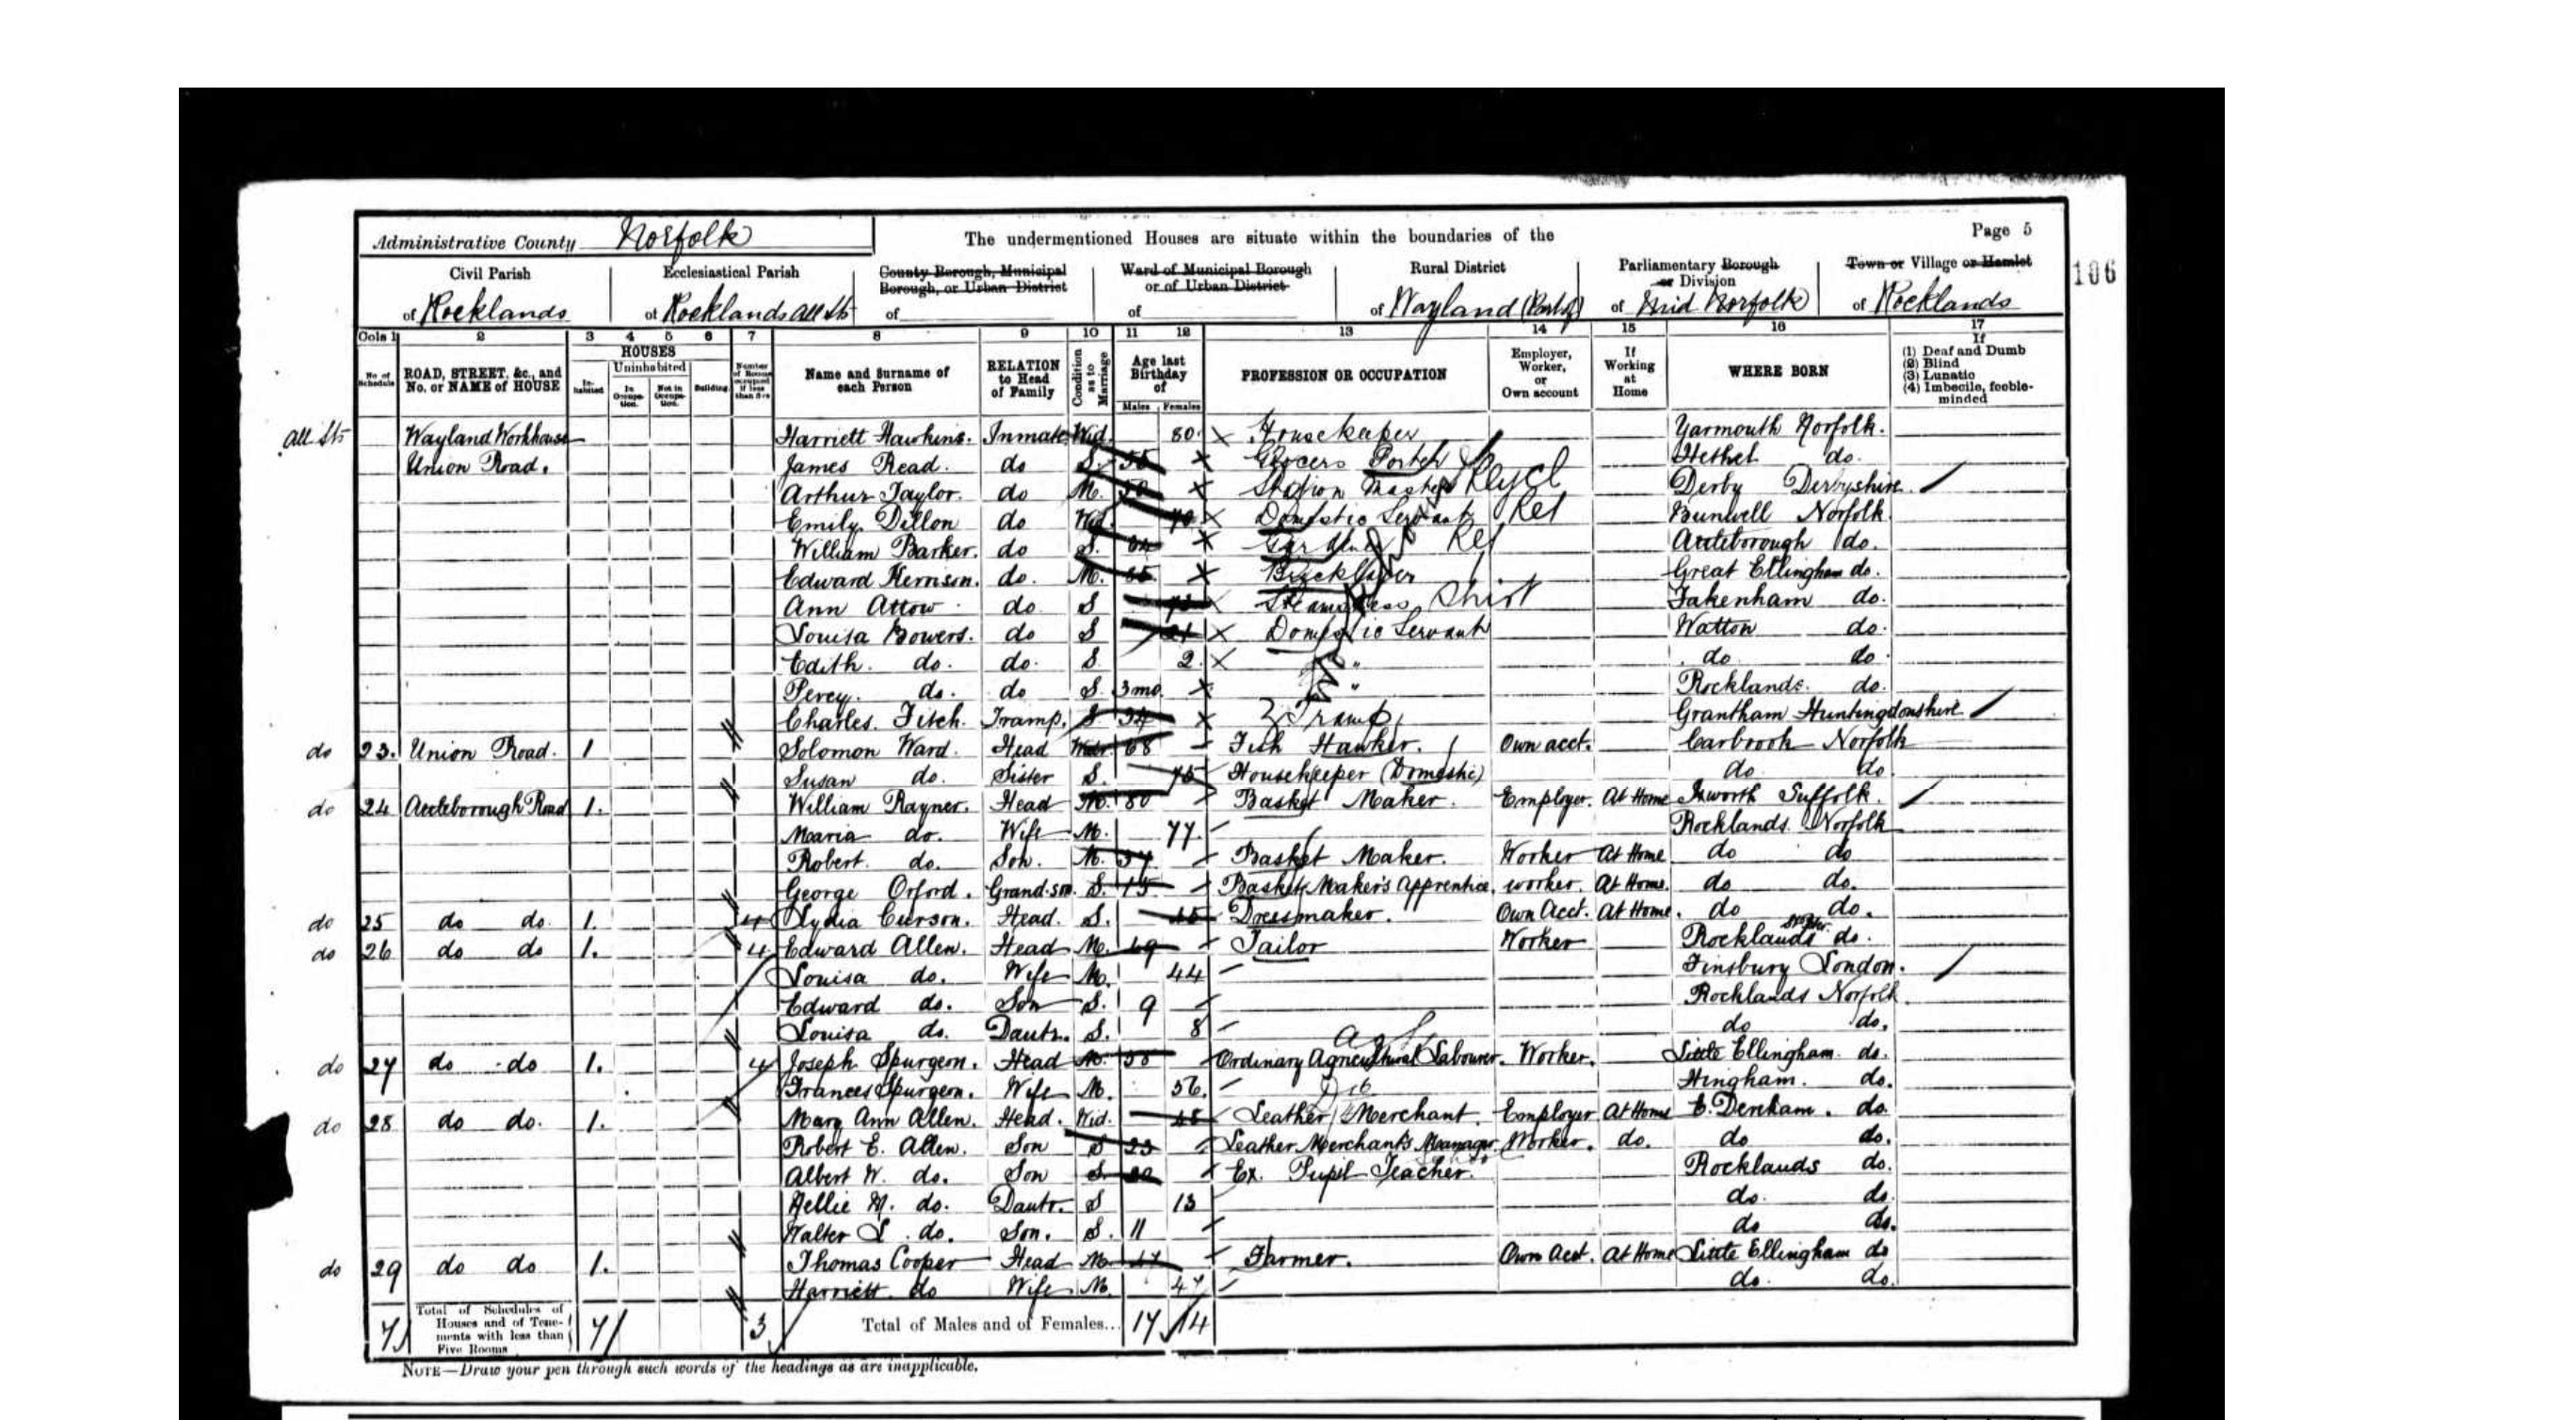 Administrative County Norfolk
The undermentioned Houses are situate within the boundaries of the
Page 5
106
Civil Parish of Rocklands
Ecclesiastical Parish of Rocklands All Sts
County Borough, Municipal Borough, or Urban District of
Ward of Municipal Borough or of Urban District of
Rural District of Wayland
Parliamentary Borough or Division of Mid Norfolk
Town or Village or Hamlet of Rocklands
Cols 1 2 3 4 5 6 7 8 9 10 11 12 13 14 15 16 17
No. of Schedule
ROAD, STREET, &c., and No. or NAME of HOUSE
HOUSES
Inhabited
Uninhabited
In Occupation.
Not in Occupation.
Building
Number of Rooms occupied if less than five
Name and Surname of each Person
RELATION to Head of Family
Condition as to Marriage
Age last Birthday of
Males Females
PROFESSION OR OCCUPATION
Employer, Worker, or Own account
If Working at Home
WHERE BORN
If (1) Deaf and Dumb (2) Blind (3) Lunatic (4) Imbecile, feeble-minded
All Sts Wayland Workhouse Harriett Hawkins. Inmate Wid. 80 X Housekeeper Yarmouth Norfolk.
Union Road. James Read. do S. X Grocers Porter Hethel do.
Arthur Taylor. do M. X Station Master Derby Derbyshire
Emily Dillon do Wid. X Domestic Servant Ret Bunwell Norfolk
William Barker. do S. X Gardener Ret Attleborough do.
Edward Kerrison. do. M. X Bricklayer Great Ellingham do.
Ann Attow do. S X Seamstress Shirt Fakenham do.
Louisa Bowers. do S X Domestic Servant Watton do.
Edith. do. do. S 2 X " do do
Percy. do. do S. 3mo. X " Rocklands. do.
Charles. Fitch. Tramp. S X Tramp Grantham Huntingdonshire
do 23. Union Road. 1 Solomon Ward. Head 68 Fish Hawker. Own acct. Carbrook Norfolk
Susan do. Sister S. 75 Housekeeper (Domestic) do do
do 24 Attleborough Road 1. William Rayner. Head M. 80 Basket Maker. Employer. At Home Ixworth Suffolk.
Maria do. Wife M. 77. Rocklands Norfolk
Robert. do. Son. M. Basket Maker. Worker At Home do do
George Orford. Grand-son. S. 15 Basket Maker's Apprentice. worker. At Home. do do.
do 25 do do. 1. 4 Lydia Curson. Head. S. Dressmaker. Own Acct. At Home. do do.
do 26 do do 1. 4 Edward Allen. Head M. 49 Tailor Worker Rocklands do.
Louisa do. Wife M. 44 Finsbury London.
Edward do. Son S. 9 Rocklands Norfolk
Louisa do. Dautr. S. 8 do do.
Ag
do 27 do do 1. 4 Joseph Spurgeon. Head M. 55 Ordinary Agricultural Labourer. Worker. Little Ellingham. do.
Frances Spurgeon. Wife M. 56. Hingham. do.
do 28 do do. 1. Mary Ann Allen. Head. Wid. Leather Merchant. Employer At Home E. Dereham. do.
Robert E. Allen. Son S 23 Leather Merchant's Manager Worker. do. do do.
Albert W. do. Son S. Ex. Pupil Teacher. Rocklands do.
Nellie M. do. Dautr. S 13 do. do.
Walter L. do. Son. S. 11 do do.
do 29 do do 1. Thomas Cooper Head M. 47 Farmer. Own Acct. At Home Little Ellingham do
Harriett do Wife M. 47 do. do.
7 Total of Schedules of Houses and of Tenements with less than Five Rooms 7 3 Total of Males and of Females... 17 14
NOTE—Draw your pen through such words of the headings as are inapplicable.